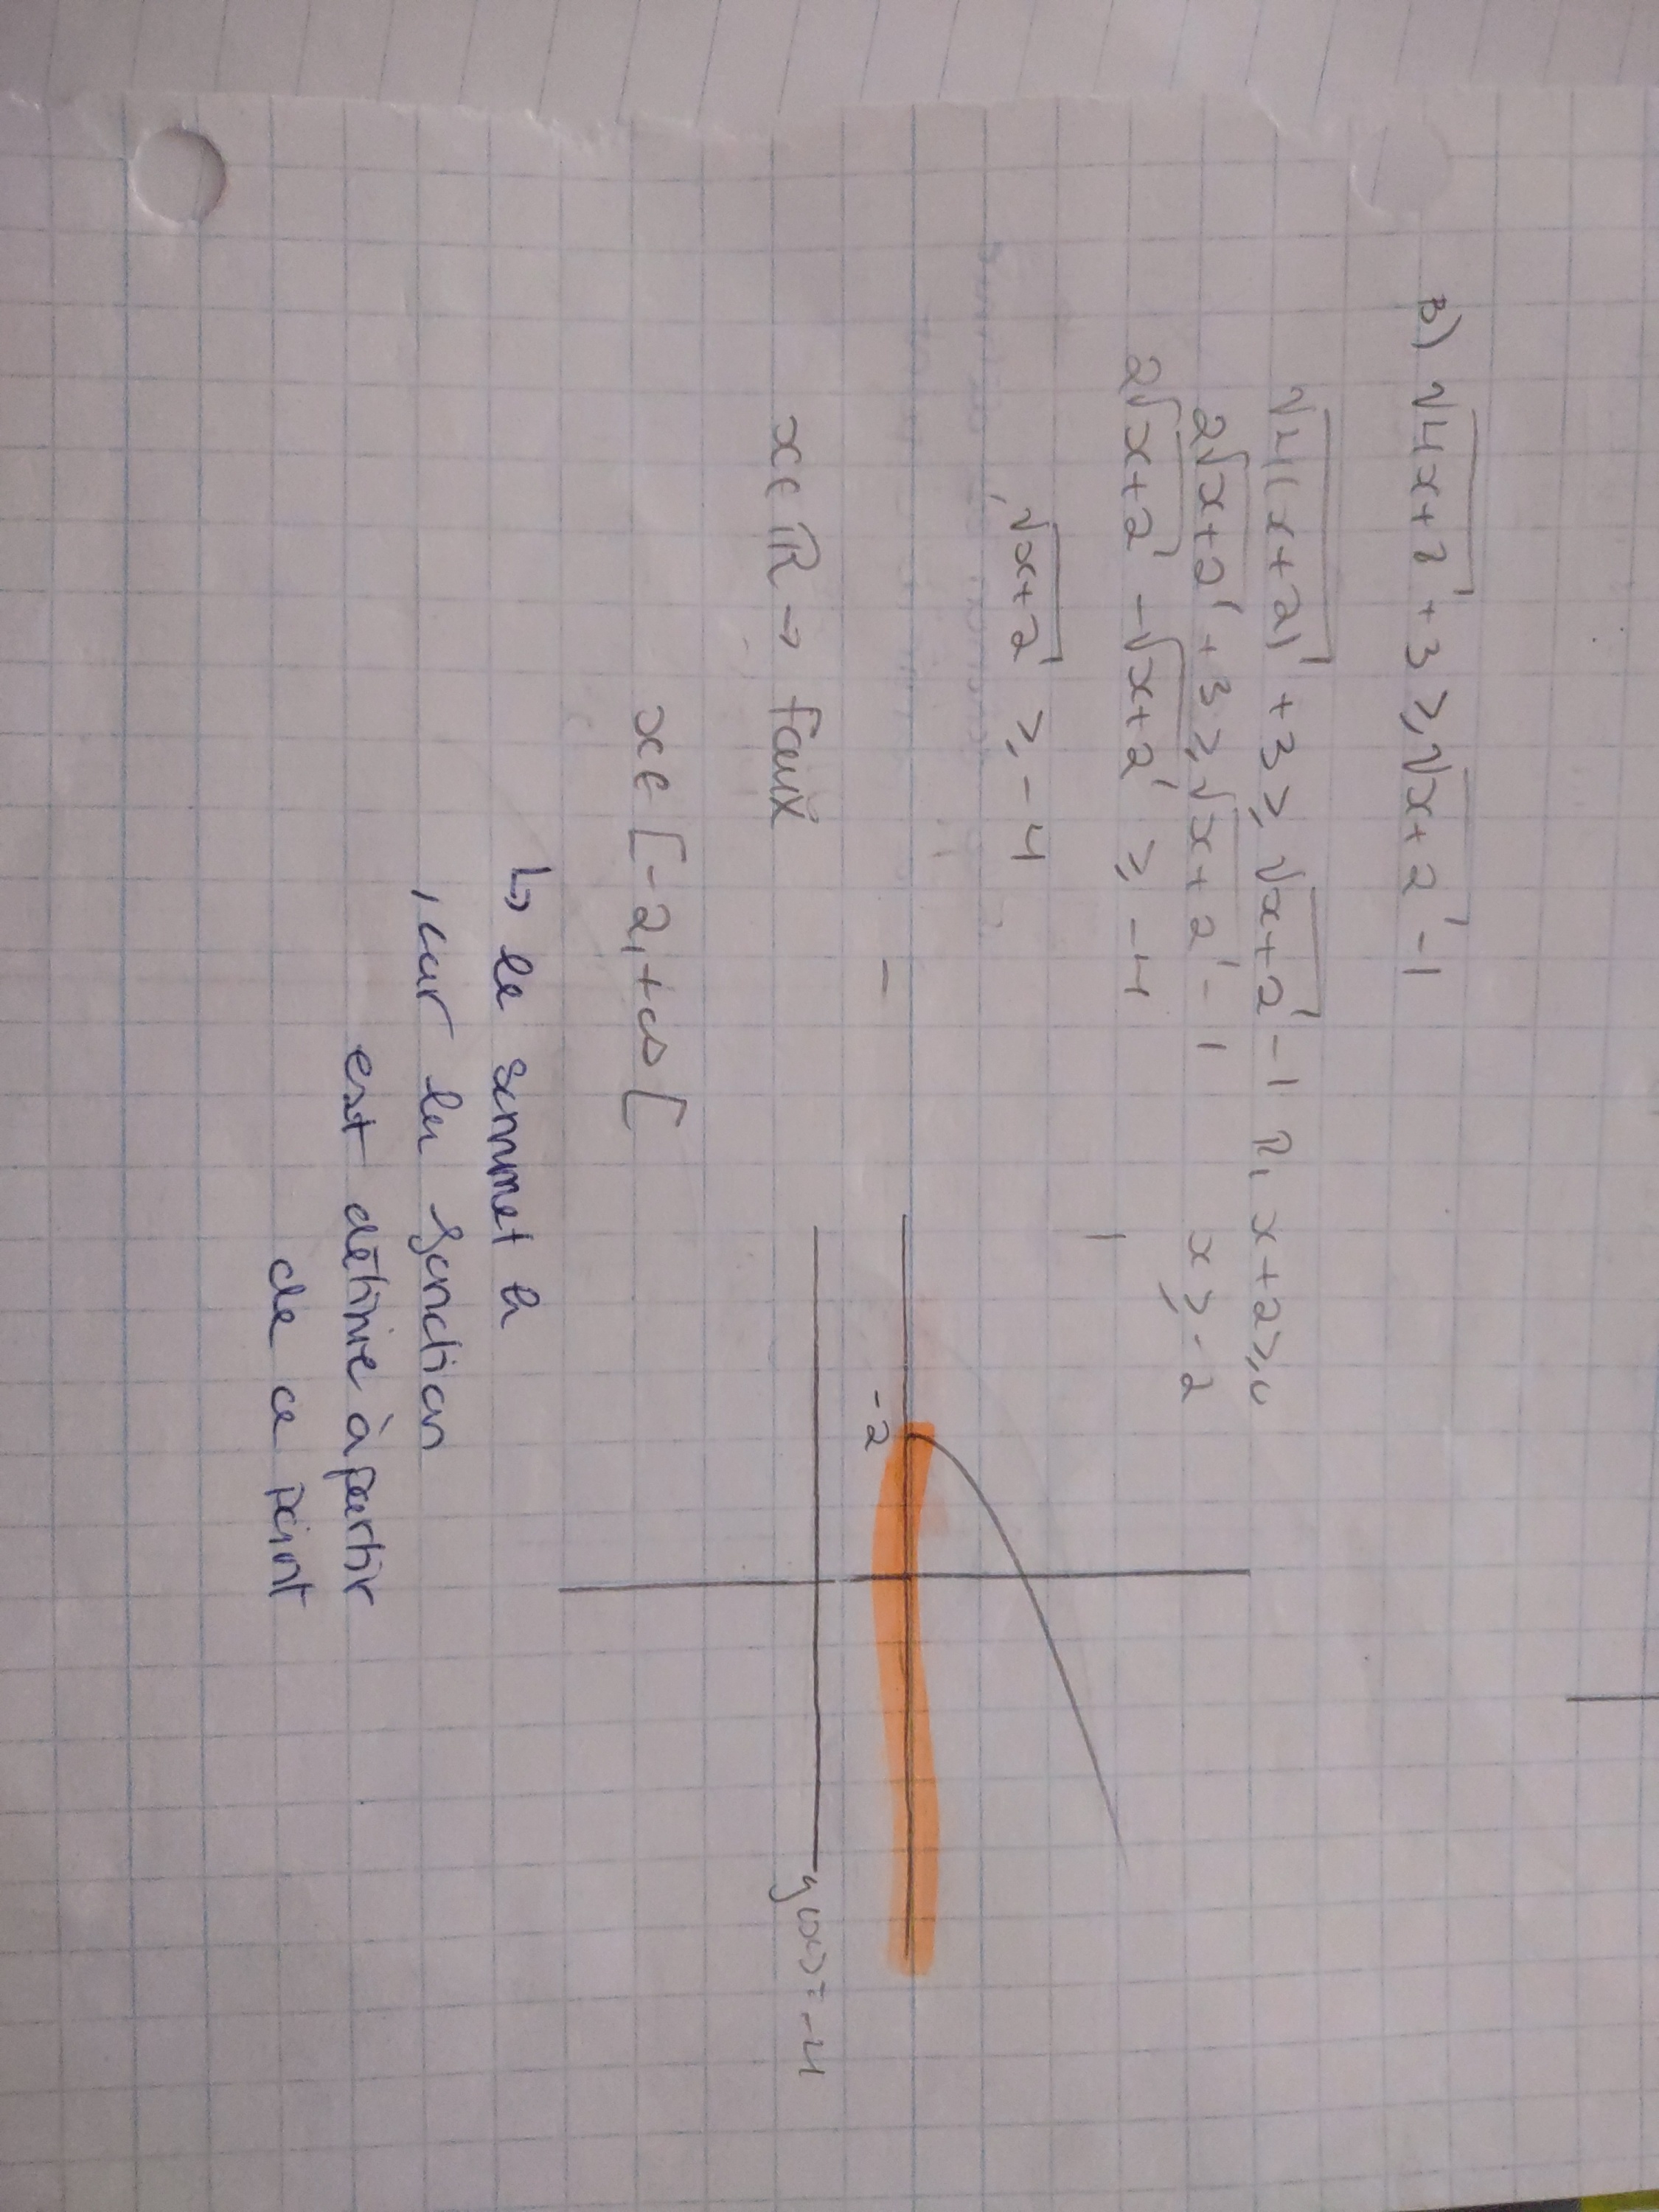 B) √4x+8 + 3 ≥ √x+2 - 1
√4(x+2) + 3 ≥ √x+2 - 1
2√x+2 + 3 ≥ √x+2 - 1
2√x+2 - √x+2 ≥ -4
√x+2 ≥ -4
x+2 ≥ 0
x ≥ -2
-2
y(x) = -4
x ∈ ℝ → faux
x ∈ [-2, +∞[
↳ le sommet h
, car la fonction
est définie à partir
de ce point